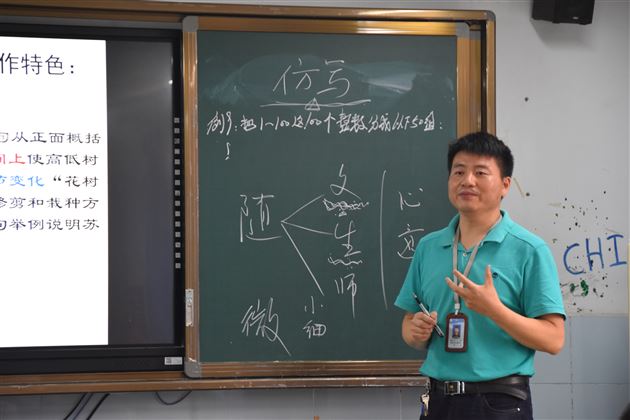 作特色：
句从正面概括
间上使高低树
节变化“花树
修剪和栽种方
句举例说明苏
仿写
例1：把1～100这100个整数分成以下50组：
随
文
生
师
心
微
小
细
CHI